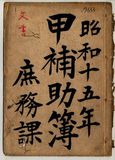 昭和十五年
甲補助簿
庶務課